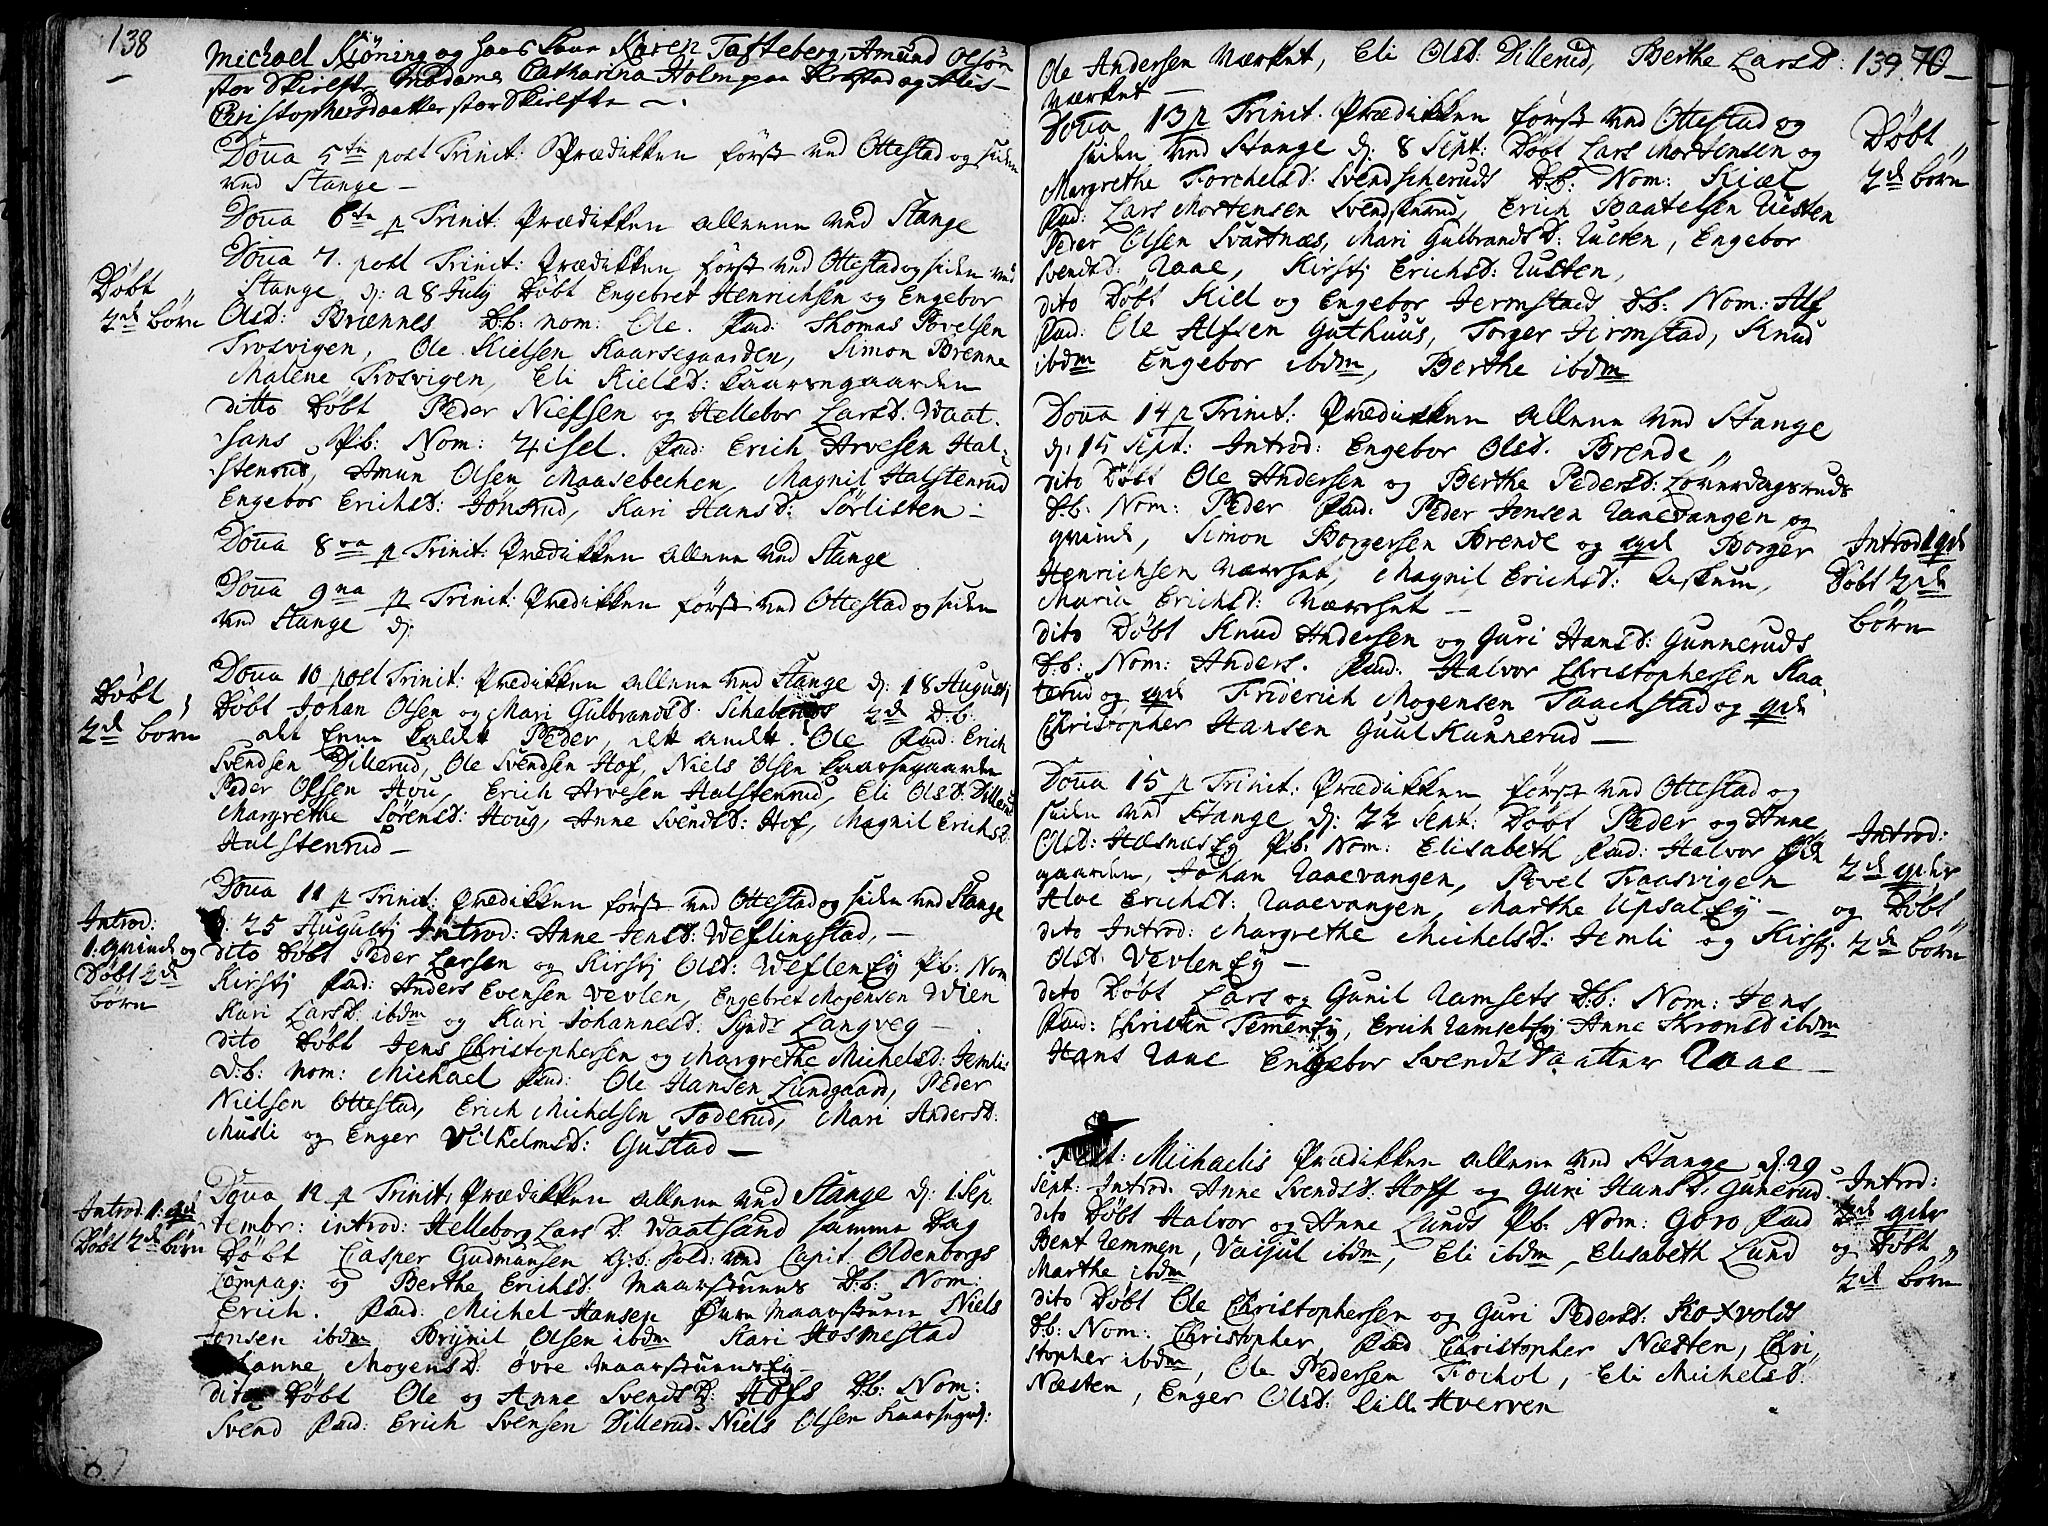 138
Michael Kiöning og hans Kone Karen Tafteberg, Amund Olsön
stor Skirlste, Madame Catharina Holm paa Krogstad og Alis
Christophersdaatter stor Skirlste
Dom̄a 5te post Trinit: Prædikken först ved Ottestad og siden
ved Stange
Dom̄a 6te p Trinit: Prædikken allene ved Stange
Dom̄a 7. post Trinit: Prædikken först ved Ottestad og siden ved
Döbt
2de börn
Stange d: a 8 July Döbt Engebret Henrichsen og Engebor
Olsd: Brennes D.b: nom: Ole. Fad: Thomas Povelsen
Trosvigen, Ole Kielsen Kaarsegaarden, Simon Brenne
Malene Trosvigen, Eli Kielsd: Kaarsegaarden
ditto Döbt Peder Nielsen og Hellebor Larsd: Waat
sans P.b: Nom: Zisel. Fad: Erich Arvesen Hal-
stenrud, Amun Olsen Maasebechen, Magnil Halstenrud
Engebor Erichsd: Jönsrud, Kari Hansd: Sörlisten
Dom̄a 8va p Trinit: Prædikken allene ved Stange
Dom̄a 9na p Trinit: Prædikken först ved Ottestad og siden
ved Stange d:
Dom̄a 10 post Trinit: Prædikken allene ved Stange d: 18 Augustj
Döbt
2de börn
Döbt Johan Olsen og Mari Gulbrandsd: 2de D.b.
det Eene kaldet Peder, dett andet Ole Fad: Erich
Svendsen Dillerud, Ole Svendsen Hof, Niels Olsen Kaarsegaarden
Peder Olsen Hou, Erich Arvesen Halstenrud, Eli Olsd: Dillerud
Margrethe Sörensd: Houg, Anne Svendsd: Hof, Magnil Erichsd
Halstenrud
Dom̄a 11 p Trinit: Prædikken först ved Ottestad og siden ved Stange
Introd:
1: qvinde og
Döbt 2de
börn
d. 25 Augustj Introd: Anne Jensd: Weflingstad,
dito Döbt Peder Larsen og Kirstj Olsd: Weflen Ej P.b: Nom
Kirstj Fad: Anders Evensen Vevlen, Engebret Mogensen Wien
Kari Larsd: ibdm og Kari Johannesd: Syndr Langveg
dito Döbt Jens Christophersen og Margrethe Michelsd: Jemli
D.b: nom: Michael Fad: Ole Hansen Lundgaard, Peder
Nielsen Ottestad, Erich Michelsen Foderud, Mari Andersd:
Musli og Enger Vilhelmsd: Gustad
Dom̄a 12 p Trinit: Prædikken allene ved Stange d: 1 Sep
Introd. 1: qvd
Döbt 2de börn
tembr: introd: Helleborg Lars D. Waatsand samme Dag
Döbt Casper Gudmansen G:b: Sold: ved Capit Oldenborgs
Compag: og Berthe Erichsd: Maarstuens D.b: Nom:
Erich. Fad: Michel Hansen Övre Maarstuen Niels
Jensen ibdm Brynil Olsen ibdm Kari Hosmestad
Hanne Mogensd: övre Maarstuens Ej
dito Döbt Ole og Anne Svends D: Hofs D.b: Nom:
Svend Fad: Erich Svensen Dillerud. Niels Olsen Kaarsegd:
139. 70
Ole Andersen Værket, Eli Olsd: Dillerud, Berthe Larsd:
Værket
Dom̄a 13 p Trinit. Prædikken först ved Ottestad og
Döbt
2de börn
siden ved Stange d: 8 Sept: Döbt Lars Mortensen og
Margrethe Forchelsd: Svendscheruds D.b: Nom: Kiæl
Fad: Lars Mortensen Svendskerud, Erich Baatelsen Uusten
Peder Olsen Svartnæs, Mari Gulbrandsd: Uusten, Engebor
Svendsd: Uaae, Kirstj Erichsd: Uusten,
dito Döbt Kiel og Engebor Jermstads D.b: Nom: Alf
Fad: Ole Alfsen Guthuus, Torger Jermstad, Knud
ibdm Engebor ibdm, Berthe ibdm
Dom̄a 14 p Trinit: Prædikken allene ved Stange
d: 15 Sept: Introd: Engebor Olsd. Brende
dito Döbt Ole Andersen og Berthe Pedersd: Löverdagsruds
D.b: Nom: Peder Fad: Peder Jensen Uaaevangen og
Introd 1 qvd
Döbt 2de
börn
qvinde, Simon Borgersen Brende og qvd Borger
Henrichsen Værset, Magnil Erichsd: Askum,
Maria Erichsd: Værset
dito Döbt Knud Andersen og Guri Hansd: Gunneruds
D.b: Nom: Anders. Fad: Halvor Christophersen Kaa
terud og qvd Friderich Mogensen Taachstad og qvd
Christopher Hansen Guul Kunnerud
Dom̄a 15 p Trinit: Prædikken först ved Ottestad og
Introd:
2de qvdr
og Döbt
2de börn
siden ved Stange d: 22 Sept: Döbt Peder og Anne
Olsd: Hæsnæs Ej P.b: Nom: Elisabeth Fad: Halvor
gaarden, Johan Uaaevangen, Povel Traasvigen
Aloe Erichsd: Uaaevangen, Marthe Upsal Ej
dito Introd: Margrethe Michelsd: Jemli og Kirstj
Olsd: Vevlen Ej
dito Döbt Lars og Gunil Uamsets D.b: Nom: Jens
Fad: Christen Temen Ej, Erich Uamset Ej Anne Skronsd ibdm
Hans Uaae Engebor Svends Daatter Uaae
Fest: Michaelis Prædikken allene ved Stange d. 29
Introd:
2de qvdr
og Döbt
2de börn
Sept: Introd. Anne Svendsd: Hoff og Guri Hansd: Gunerud
dito Döbt Halvor og Anne Lunds P.b: Nom: Goro Fad
Bent Uemmen, Vaisul ibdm, Eli ibdm, Elisabeth Lund
Marthe ibdm
dito Döbt Ole Christophersen og Guri Pedersd: Koxvolds
D.b: Nom: Christopher, Fad Christopher Næsten, Chri
stopher ibdm, Ole Pedersen Fochol, Eli Michelsd:
Næsten, Enger Olsd: lill Hverven